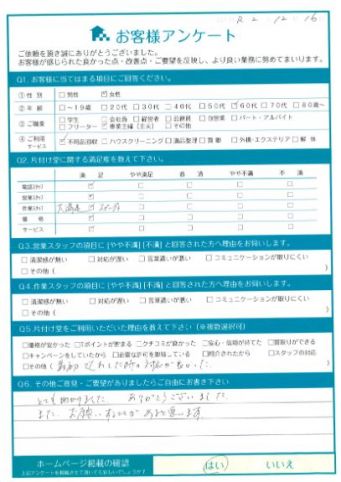 R 2. 12. 16
お客様アンケート
ご依頼を頂き誠にありがとうございました。
お客様が感じられた良かった点・改善点・ご要望を反映し、より良い業務に努めてまいります。
Q1. お客様に当てはまる項目にご回答ください。
① 性 別 □男性 ☑女性
② 年 齢 □~19歳 □20代 □30代 □40代 □50代 ☑60代 □70代 □80歳~
③ ご職業 □学生 □会社員 □経営者 □公務員 □自営業 □パート・アルバイト
□フリーター ☑専業主婦(主夫) □その他
④ ご利用サービス ☑不用品回収 □ハウスクリーニング □遺品整理 □買取 □外構・エクステリア □解体
Q2. 片付け堂に関する満足度を教えて下さい。
満 足 やや満足 普 通 やや不満 不 満
電話対応 ☑ □ □ □ □
営業対応 ☑ □ □ □ □
作業対応 大満足 ☑ □ □ □ □
価 格 ☑ □ □ □ □
サービス ☑ □ □ □ □
Q3. 営業スタッフの項目に [やや不満] [不満] と回答された方へ理由をお伺いします。
□清潔感が無い □対応が遅い □言葉遣いが悪い □コミュニケーションが取りにくい
□その他 (
Q4. 作業スタッフの項目に [やや不満] [不満] と回答された方へ理由をお伺いします。
□清潔感が無い □対応が遅い □言葉遣いが悪い □コミュニケーションが取りにくい
□その他 (
Q5. 片付け堂をご利用いただいた理由を教えて下さい(※複数選択可)
□価格が安かった □Tポイントが貯まる □クチコミが良かった □安心・信頼が持てた □買取りができる
□キャンペーンをしていたから □必要な許可を取得している □紹介されたから □スタッフの対応
□その他 ( 最初 した時の対応が良かった。
Q6. その他ご意見・ご要望がありましたらご自由にお書き下さい
とても助かりました。 ありがとうございました。
また、お願い すると思います。
ホームページ掲載の確認
上記アンケートを掲載させて頂いてもよろしいでしょうか
はい いいえ